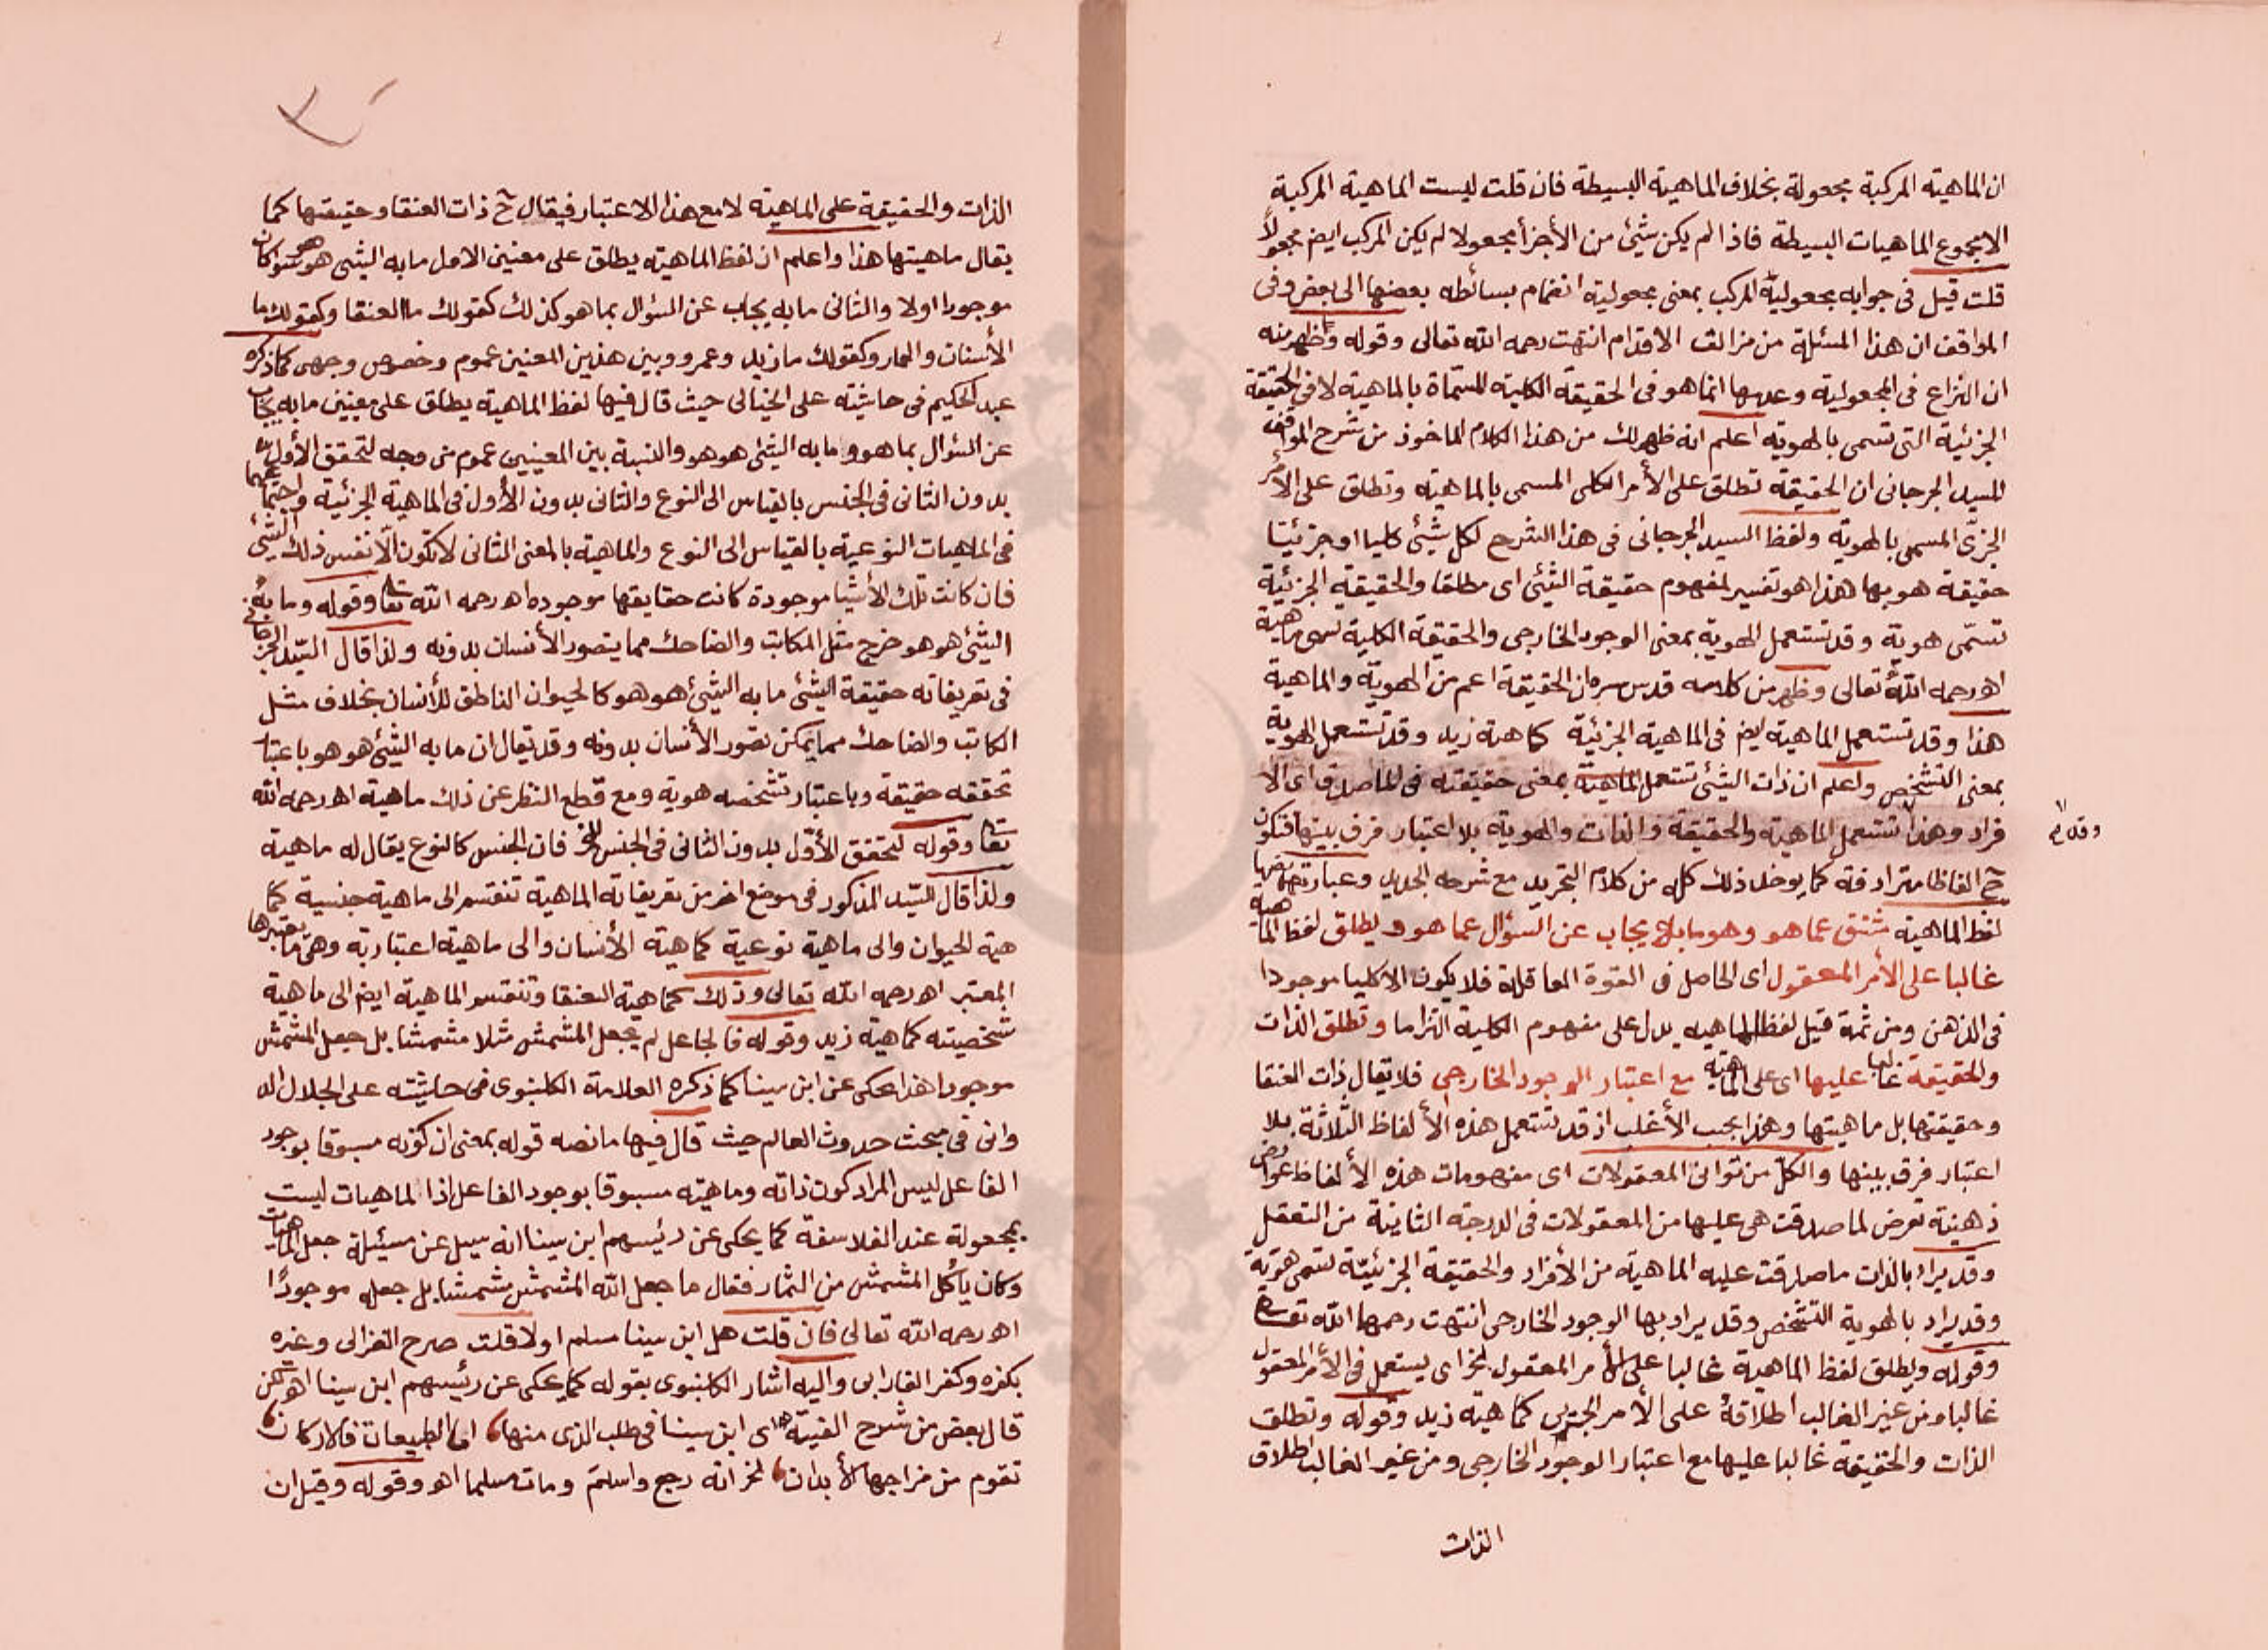 ان الماهية المركبة مجعولة بخلاف الماهية البسيطة فان قلت ليست الماهية المركبة
الا مجموع الماهيات البسيطة فاذا لم يكن شئ من الأجزأ مجعولا لم يكن المركب ايض مجعولاً
قلت قيل فى جوابه مجعولية المركب بمعنى مجعولية انضمام بسائطه بعضها الى بعض وفى
المواقف ان هذا المسئلة من مزالق الاقدام انتهت رحمه الله تعالى وقوله وظهر منه
ان النزاع فى المجعولية وعدمها انما هو فى الحقيقة الكلية المسماة بالماهية لا فى الحقيقة
الجزئية التى تسمى بالهوية اعلم انه ظهر لك من هذا الكلام الماخوذ من شرح المواقف
للسيد الجرجانى ان الحقيقة تطلق على الأمر الكلى المسمى بالماهية وتطلق على الأمر
الجزئى المسمى بالهوية ولفظ السيد الجرجانى فى هذا الشرح لكل شيئ كليا او جزئيتا
حقيقة هو بها هذا هو تفسير لمفهوم حقيقة الشئ اى مطلقا والحقيقة الجزئية
تسمّى هوية وقد تستعمل الهوية بمعنى الوجود الخارجى والحقيقة الكلية تسمى ماهية
اهـ رحمه الله تعالى وظهر من كلامه قدس سره ان الحقيقة اعم من الهوية والماهية
هذا وقد تستعمل الماهية ايض فى الماهية الجزئية كماهية زيد وقد تستعمل الهوية
بمعنى التشخص واعلم ان ذات الشئ تستعمل الماهية بمعنى حقيقته فى الماصدق اى الا
فراد وهذا تستعمل الماهية والحقيقة والذات والهوية بلا اعتبار فرق بينها فتكون
وقد
ح الفاظا مترادفة كما يوخذ ذلك كله من كلام التجريد مع شرحه الجديد وعبارتهما
لفظ الماهية مشتق عما هو وهو ما به يجاب عن السؤال عما هو ويطلق لفظ الماهية
غالبا على الأمر المعقول اى الحاصل فى القوة العاقلة فلا يكون الا كليا موجودا
فى الذهن ومن ثمة قيل لفظ الماهيه يدل على مفهوم الكلية التزاما وتطلق الذات
والحقيقة غالبا عليها اى على الماهية مع اعتبار الوجود الخارجى فلا يقال ذات العنقا
وحقيقتها بل ماهيتها وهذا بحسب الأغلب اذ قد تستعمل هذه الألفاظ الثلاثة بلا
اعتبار فرق بينها والكل من ثوانى المعقولات اى مفهومات هذه الألفاظ عوارض
ذهنية تعرض لما صدقت هى عليها من المعقولات فى الدرجة الثانية من التعقل
وقد يراد بالذات ما صدقت عليه الماهية من الأفراد والحقيقة الجزئية تسمى هوية
وقد يراد بالهوية التشخص وقد يراد بها الوجود الخارجى انتهت رحمها الله تعا
وقوله ويطلق لفظ الماهية غالبا على الأمر المعقول الخ اى يستعمل فى الأمر المعقول
غالبا ومن غير الغالب اطلاقة على الأمر الجزئى كماهية زيد وقوله وتطلق
الذات والحقيقة غالبا عليها مع اعتبار الوجود الخارجى ومن غير الغالب اطلاق
الذات
الذات والحقيقة على الماهية لا مع هذا الاعتبار فيقال ح ذات العنقا وحقيقتها كما
يقال ماهيتها هذا واعلم ان لفظ الماهية يطلق على معنين الاول ما به الشئ هو هو سوا كان
موجودا اولا والثانى ما به يجاب عن السؤال بما هو كذلك كقولك ما العنقا وكقولك ما
الأنسان والحمار وكقولك ما زيد وعمرو وبين هذين المعنين عموم وخصوص وجهى كما ذكره
عبد الحكيم فى حاشيته على الخيالى حيث قال فيها لفظ الماهية يطلق على معنيين ما به يجاب
عن السؤال بما هو وما به الشئ هو هو والنسبة بين المعنيين عموم من وجه لتحقق الأول
بدون الثانى فى الجنس بالقياس الى النوع والثانى بدون الأول فى الماهية الجزئية واجتماعهما
فى الماهيات النوعية بالقياس الى النوع والماهية بالمعنى الثانى لا تكون الا نفس ذلك الشئ
فان كانت تلك الأشيا موجودة كانت حقايقها موجوده اهـ رحمه الله تعا وقوله وما به
الشئ هو هو خرج مثل الكاتب والضاحك مما يتصور الأنسان بدونه ولذا قال السيد الجرجانى
فى تعريفاته حقيقة الشئ ما به الشئ هو هو كالحيوان الناطق للأنسان بخلاف مثل
الكاتب والضاحك مما يمكن تصور الأنسان بدونه وقد يقال ان ما به الشئ هو هو باعتبار
تحققه حقيقة وباعتبار تشخصه هوية ومع قطع النظر عن ذلك ماهية اهـ رحمه الله
تعا وقوله لتحقق الأوّل بدون الثانى فى الجنس الخ فان الجنس كالنوع يقال له ماهية
ولذا قال السيد المذكور فى موضع اخر من تعريفاته الماهية تنقسم الى ماهية جنسية كما
هية الحيوان والى ماهية نوعية كماهية الأنسان والى ماهية اعتبارية وهى ما يعتبرها
المعتبر اهـ رحمه الله تعالى وذلك كماهية العنقا وتنقسم الماهية ايض الى ماهية
شخصيته كماهية زيد وقوله فالجاعل لم يجعل المشمش مثلا مشمشا بل جعل المشمش
موجودا هذا يحكى عن ابن سينا كما ذكره العلامة الكلنبوى فى حاشيته على الجلال الد
وانى فى مبحث حدوث العالم حيث قال فيها مانصه قوله بمعنى ان كونه مسبوقا بوجود
الفاعل ليس المراد كون ذاته وماهيته مسبوقا بوجود الفاعل اذ الماهيات ليست
بمجعولة عند الفلاسفة كما يحكى عن رئيسهم ابن سينا انه سيل عن مسئلة جعل الماهيات
وكان يأكل المشمش من الثمار فقال ما جعل الله المشمش مشمشا بل جعله موجودًا
اهـ رحمه الله تعالى فان قلت هل ابن سينا مسلم اولا قلت صرح الغزالى وغيره
بكفره وكفر الفارابى واليه اشار الكلنبوى بقوله كما يحكى عن رئيسهم ابن سينا اهـ لكن
قال بعض من شرح الفية اى ابن سينا فى طلب الذى منها اما الطبيعات فالاركان
تقوم من مزاجها الأبدان الخ انه رجع واسلم ومات مسلما اهـ وقوله وقيل ان